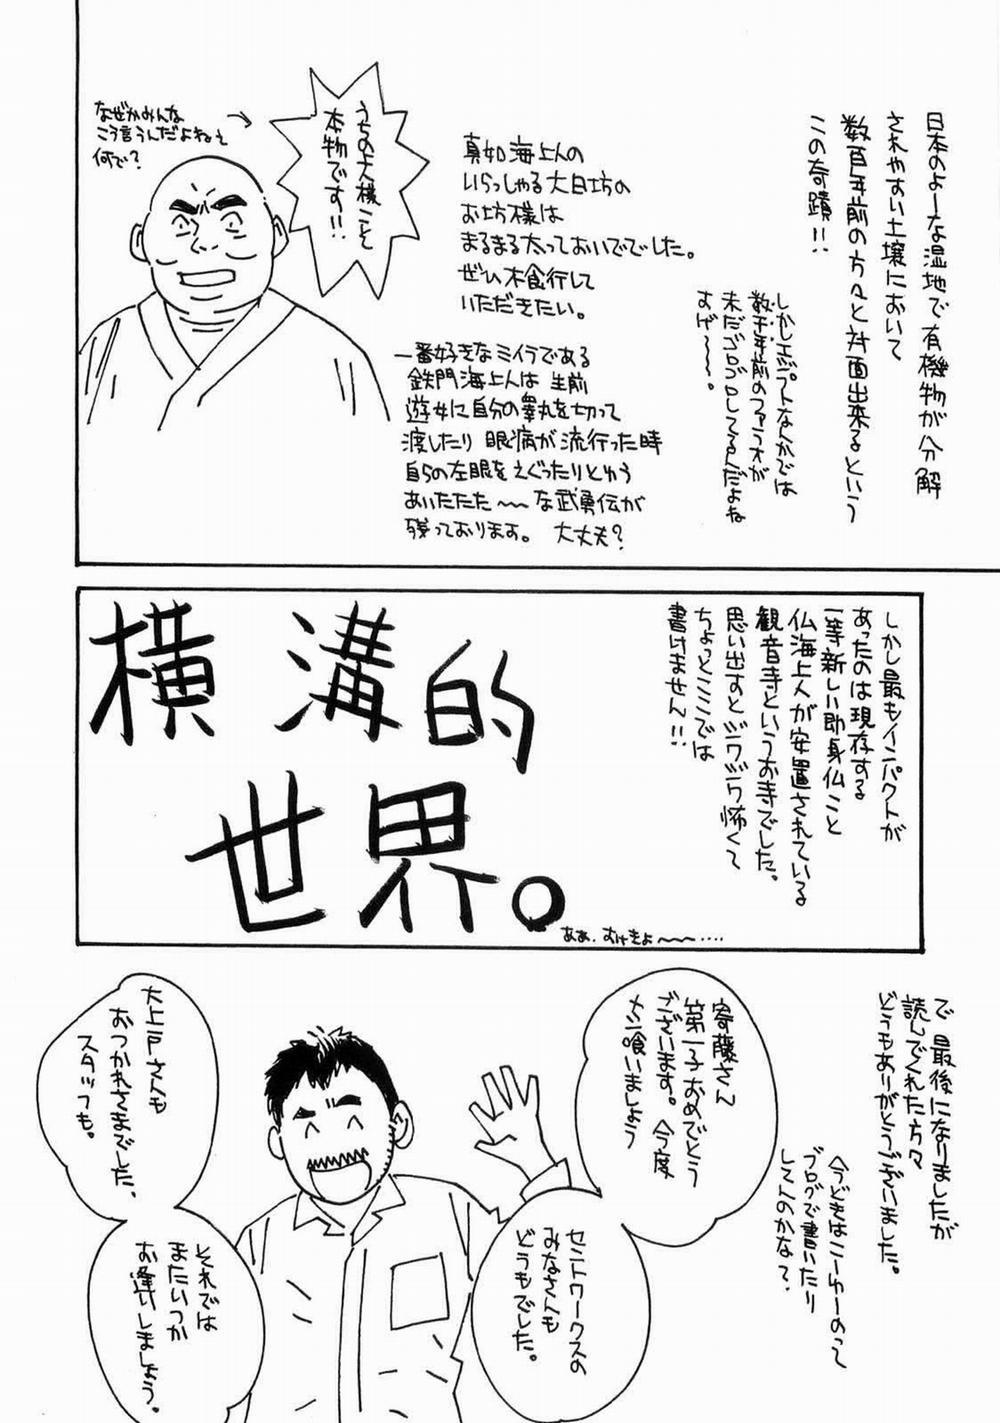 日本のよーな湿地で有機物が分解
されやすい土壌において
数百年前の方々と対面出来るという
この奇蹟!!
しかしエジプトなんかでは
数千年前のファラオが
未だゴロゴロしてるんだよね
すげ〜〜〜。
真如海上人の
いらっしゃる大日坊の
お坊様は
まるまる太っておいででした。
ぜひ木食行して
いただきたい。
うちの大様こそ
本物です!!
なぜかみんな
こう言うんだよねぇ
何で?
一番好きなミイラである
鉄門海上人は生前
遊女に自分の睾丸を切って
渡したり眼病が流行った時
自らの左眼をえぐったりとゆう
あいたたた〜〜な武勇伝が
残っております。大丈夫?
しかし最もインパクトが
あったのは現存する
一等新しい即身仏こと
仏海上人が安置されている
観音寺というお寺でした。
思い出すとジワジワ怖くて
ちょっとここでは
書けません!!
横溝的
世界。
ああ、むけきょ〜〜‥‥
で、最後になりましたが
読んでくれた方々
どうもありがとうございました。
今どきはこーゆーのって
ブログで書いたり
してんのかな?
寄藤さん
第一子おめでとう
ございます。今度
メシ喰いましょう
セントワークスの
みなさんも
どうもでした。
大上戸さんも
おつかれさまでした、
スタッフも。
それでは
またいつか
お逢いしましょう。